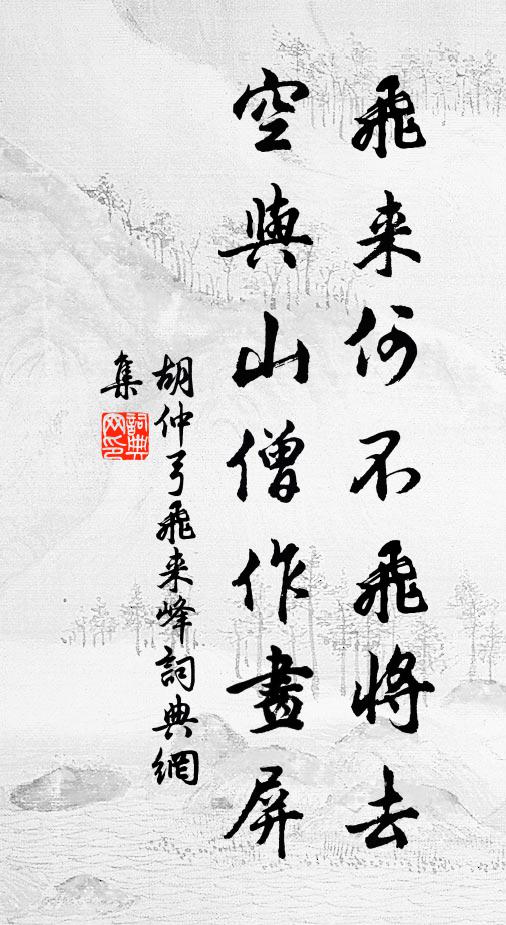 飛来何不飛將去
空與山僧作畫屏
胡仲弓飛来峰詞典網
集
詞典網印